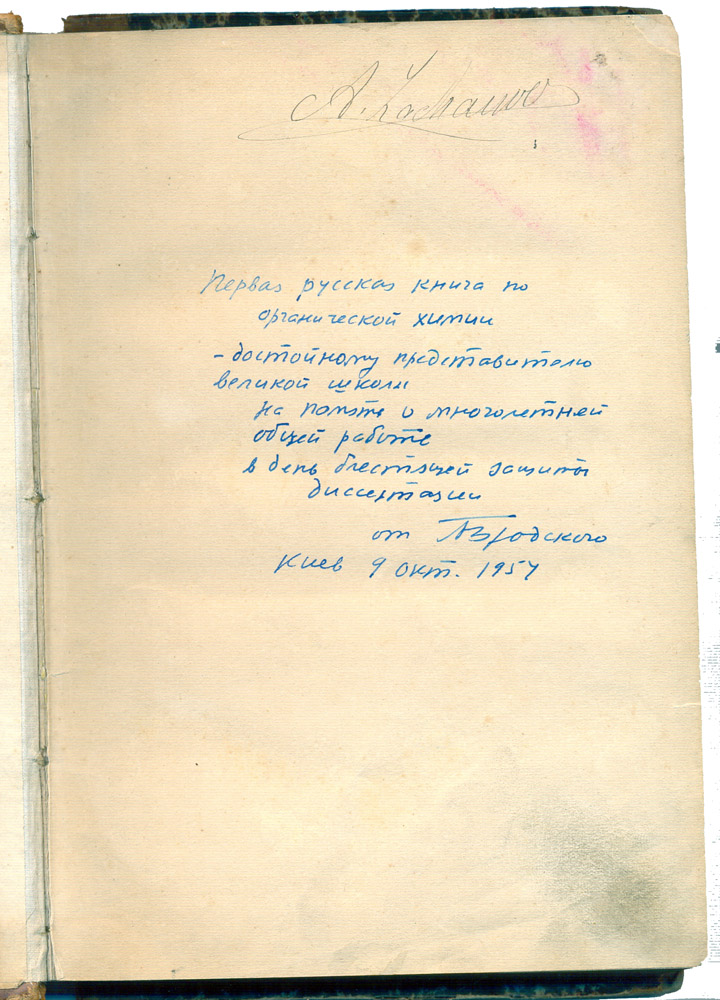 А.
Первая русская книга по
органической химии
– достойному представителю
великой школы
На память о многолетней
общей работе
в день блестящей защиты
диссертации
от АБродского
Киев 9 окт. 1957